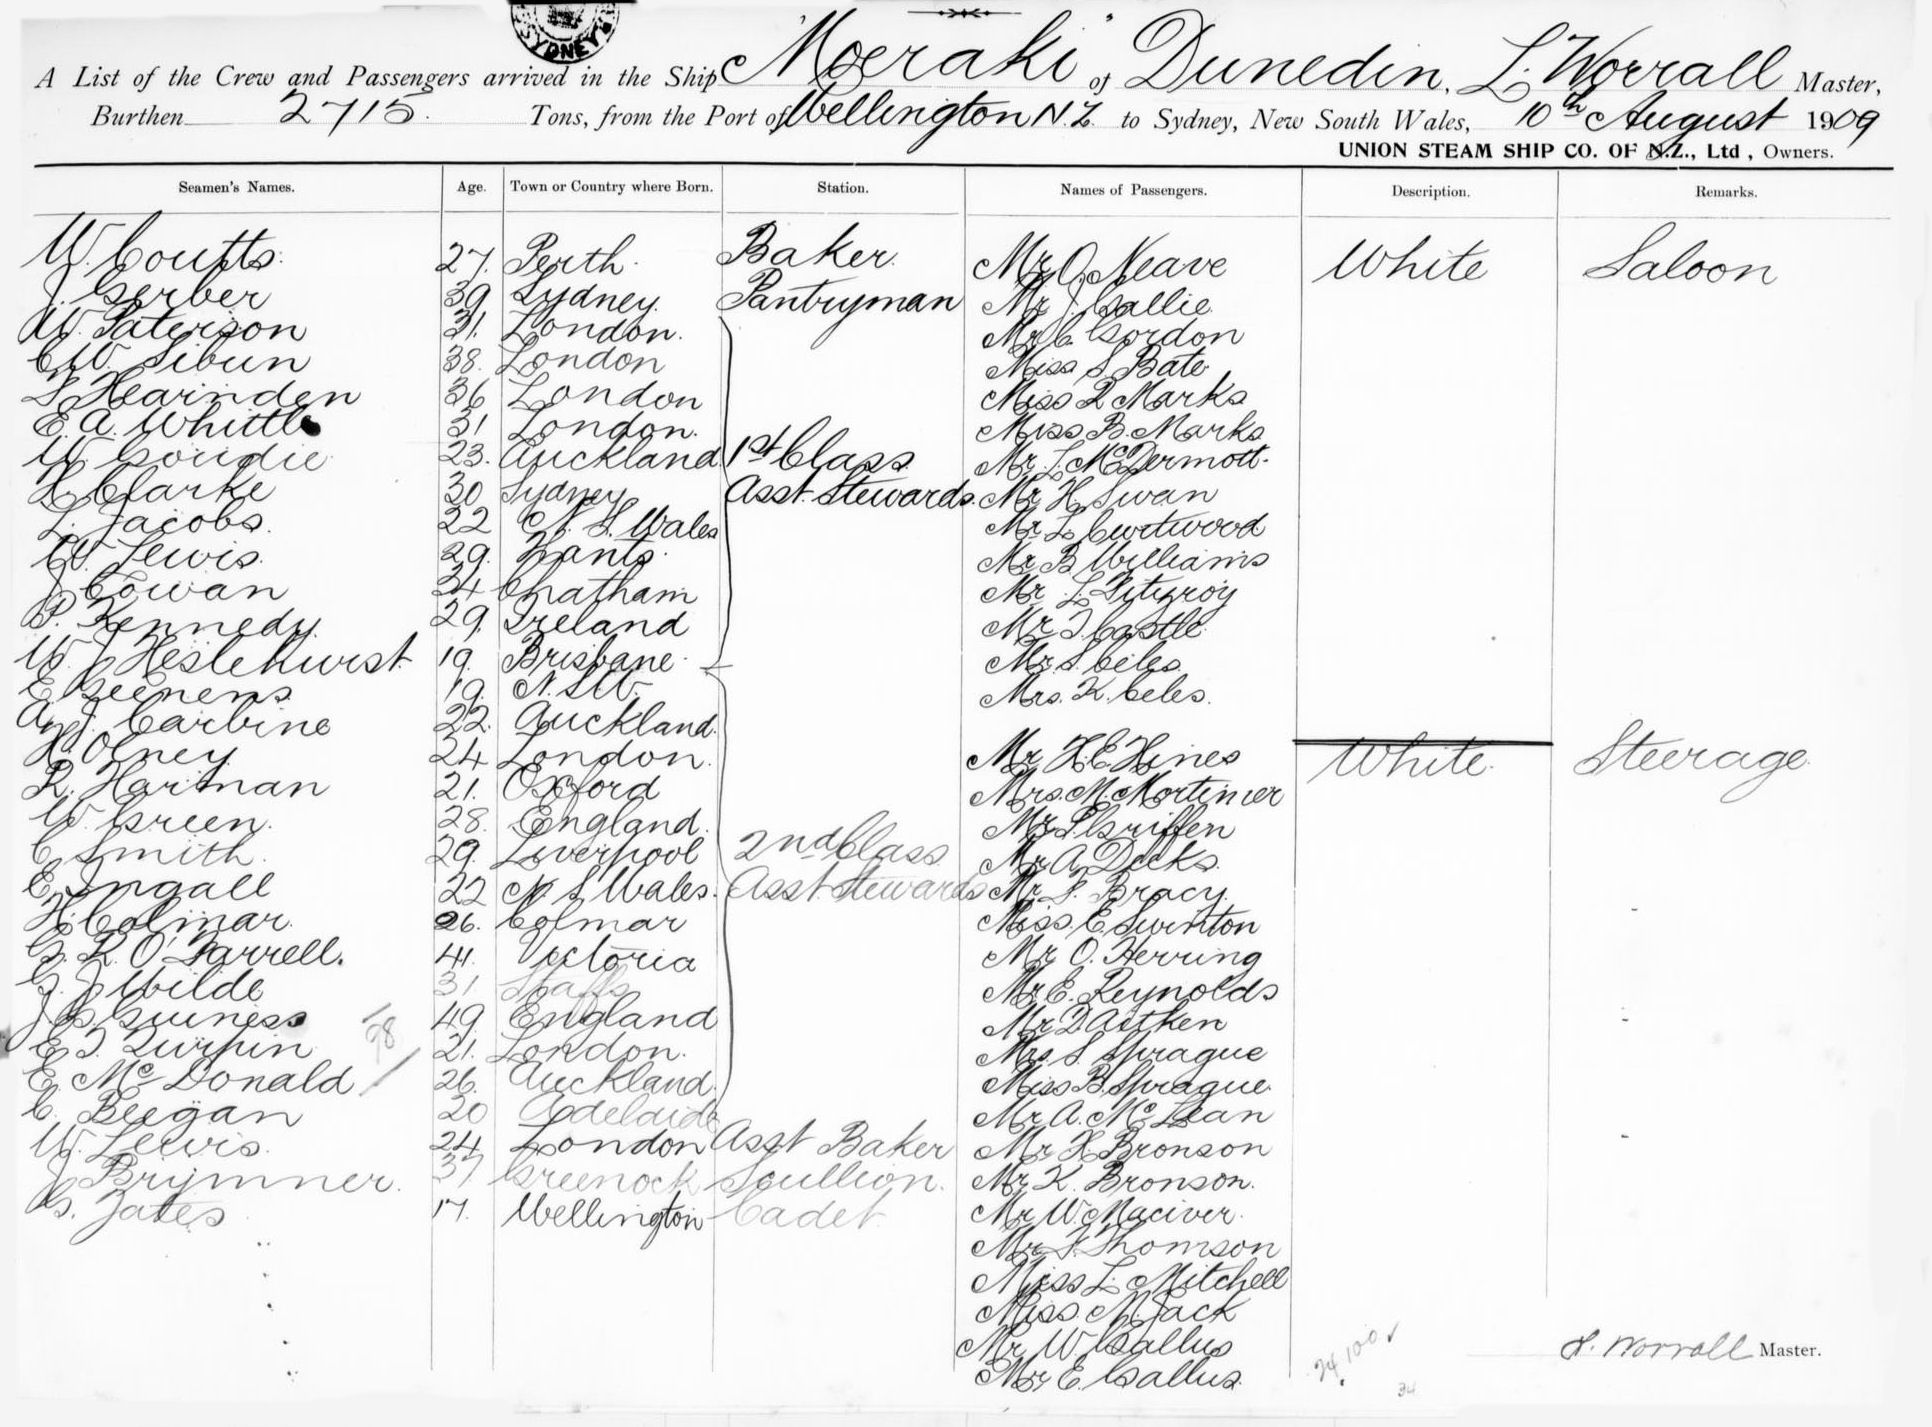 SYDNEY
A List of the Crew and Passengers arrived in the Ship "Moeraki" of Dunedin, L. Worrall Master,
Burthen 2715 Tons, from the Port of Wellington N.Z. to Sydney, New South Wales, 10th August 1909
UNION STEAM SHIP CO. OF N.Z., Ltd, Owners.
Seamen's Names. Age. Town or Country where Born. Station. Names of Passengers. Description. Remarks.
W. Coutts. 27. Perth. Baker. Mr O. Neave White Saloon
J. Gerber 39 Sydney. Pantryman Mr J. Gallie
W. Paterson 31. London. Mr C. Gordon
C W. Sibun 38. London Miss S Bate
S Hearnden 36 London Miss R Marks
E. A. Whittle 31 London. Miss B. Marks
W. Goudie 23. Auckland 1st Class Mr L. McDermott.
H Clarke 30 Sydney Asst. Stewards. Mr H. Swan
L. Jacobs. 22 N. S. Wales Mr L.
W. Lewis. 29. Hants. Mr B Williams
J Cowan 34 Chatham Mr L. Fitzroy
P. Kennedy. 29. Ireland Mr J. Castle.
W. J Heslehurst 19. Brisbane. Mr S. Celes.
E 19. N. S. W. Mrs. K. Celes.
A. J. Carbine 22. Auckland.
H. Olney 24 London. Mr H. E. Hines White. Steerage.
R. Harman 21. Oxford Mrs. M. Mortimer
W. Green. 28. England. Mr Griffen
C Smith. 29. Liverpool 2nd Class Mr A
E Ingall 22 N. S Wales. Asst. Stewards Mr F. Bracy.
H. Colmar. 26. Colmar Miss. E. Swinton
G. R. O'Farrell. 41. Victoria Mr O. Herring
G. J Wilde 31 Staffs Mr E. Reynolds
J. G. Guiness 49. England Mr D Aitken
E J. Turpin 98 21. London. Mrs S Sprague
E. McDonald 26. Auckland. Miss B. Sprague.
C. Beegan 20 Adelaide Mr A. McLean
W. Lewis. 24 London Asst Baker Mr H. Bronson
J Brymner. 37 Greenock Scullion. Mr K. Bronson.
G. Yates 17. Wellington Cadet Mr W. Maciver.
Mr F. Thomson
Miss L. Mitchell
Miss. M. Jack
Mr W. Gallus
Mr E. Gallus.
24 100 ✓
34
L. Worrall Master.